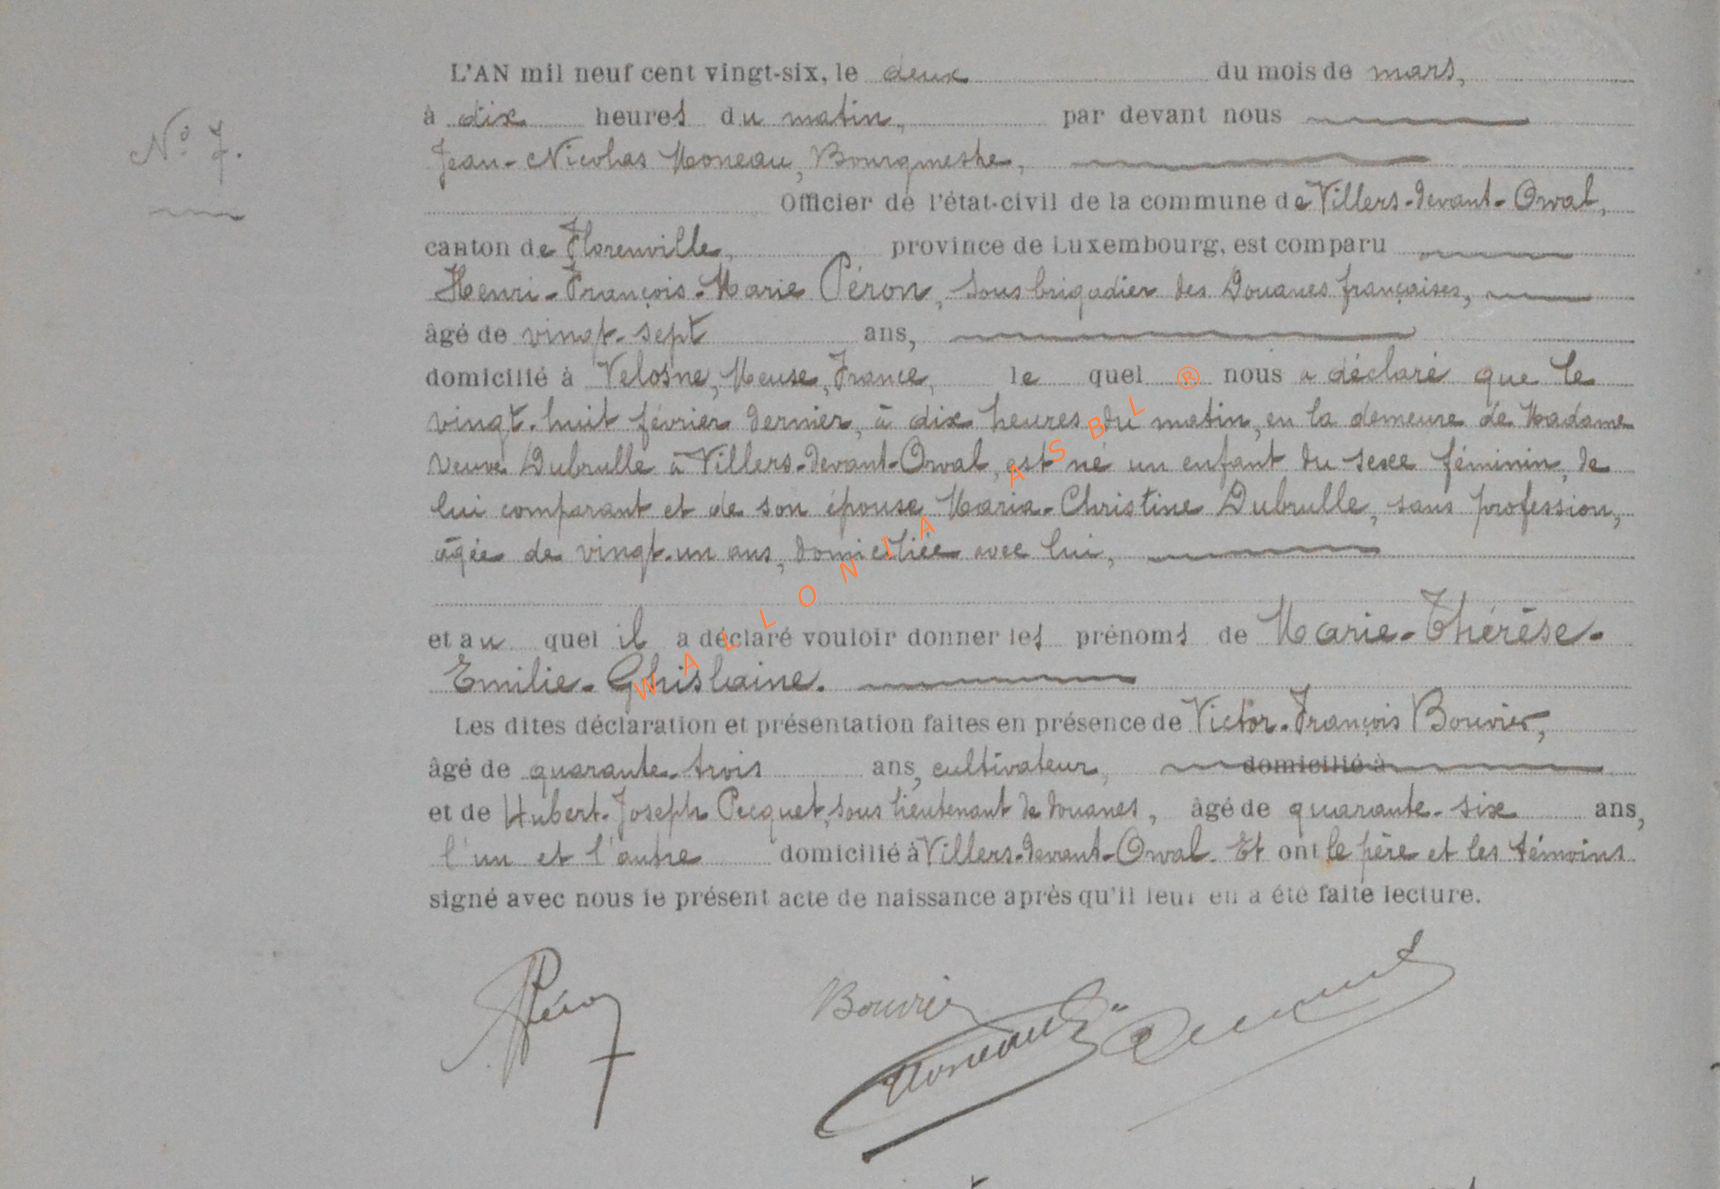 L'AN mil neuf cent vingt-six, le deux du mois de mars,
à dix heures du matin, par devant nous
N° 7.
Jean-Nicolas Moneau, Bourgmestre,
Officier de l'état-civil de la commune de Villers-devant-Orval,
canton de Florenville, province de Luxembourg, est comparu
Henri-François-Marie Péron, sous brigadier des Douanes françaises,
âgé de vingt-sept ans,
domicilié à Velosne, Meuse, France, le quel nous a déclaré que le
vingt-huit février dernier, à dix heures du matin, en la demeure de Madame
Veuve Dubrulle à Villers-devant-Orval, est né un enfant du sexe féminin, de
lui comparant et de son épouse Maria-Christine Dubrulle, sans profession,
âgée de vingt-un ans, domiciliée avec lui,
et au quel il a déclaré vouloir donner les prénoms de Marie-Thérèse-
Emilie-Ghislaine.
Les dites déclaration et présentation faites en présence de Victor-François Bouvier,
âgé de quarante-trois ans, cultivateur, domicilié à
et de Hubert-Joseph Pecquet, sous lieutenant de douanes, âgé de quarante-six ans,
l'un et l'autre domicilié à Villers-devant-Orval. Et ont le père et les témoins
signé avec nous le présent acte de naissance après qu'il leur en a été faite lecture.
Péron
Bouvier
Moneau
WALLONIA ASBL ®